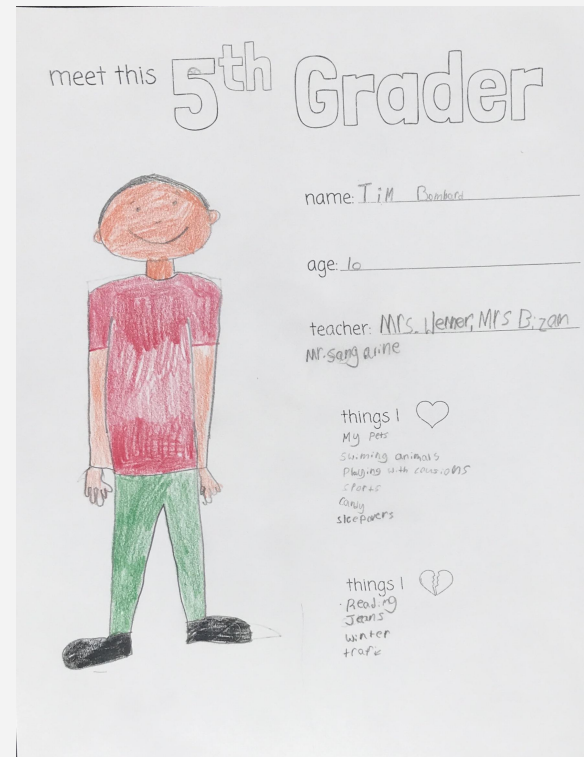 meet this 5th Grader
name: Tim Bombard
age: 10
teacher: Mrs. Werner, Mrs Bizan
Mr. Sangarine
things I
My Pets
swiming animals
Playing with cousions
sports
candy
sleepovers
things I
Reading
Jeans
winter
trafic